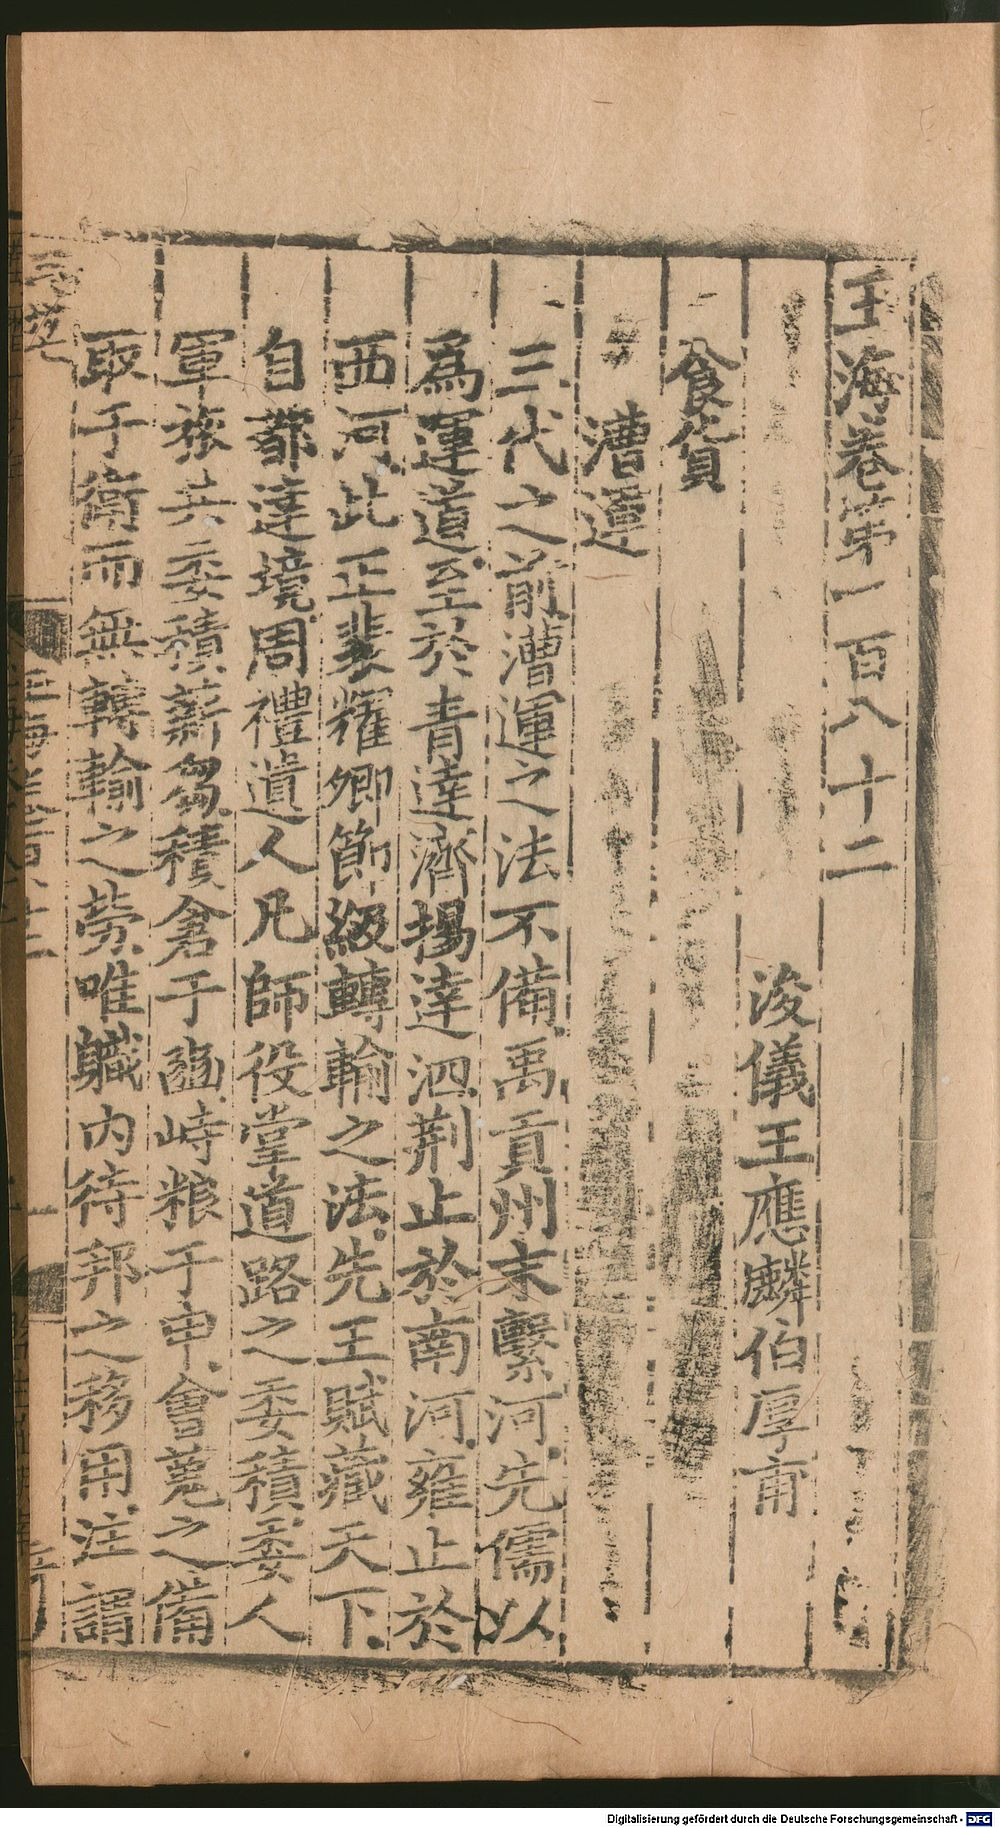 玉海卷第一百八十二
浚儀王應麟伯厚甫
食貨
漕運
三代之前漕運之法不備禹貢州末繫河先儒以
為運道至於青達濟揚達泗荆止於南河雍止於
西河此正裴耀卿節級轉輸之法先王賦藏天下
自鄙達境周禮遺人凡師役掌道路之委積委人
軍旅共委積薪芻積倉于豳峙粮于申會蒐之備
取于衛而無轉輸之勞唯職内待邦之移用注謂
Digitalisierung gefördert durch die Deutsche Forschungsgemeinschaft - DFG